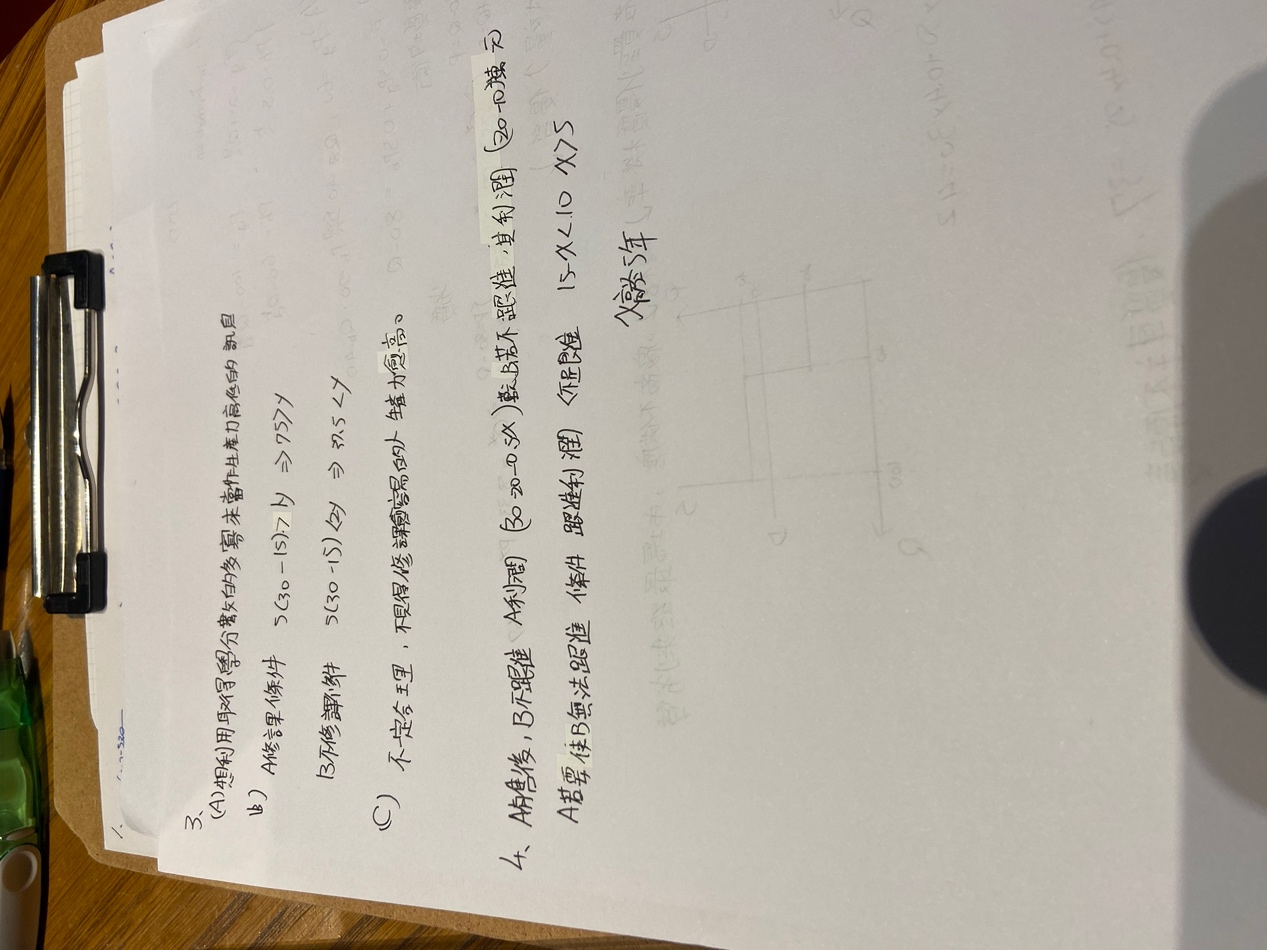 3、
(A)想利用取得學分數的多寡來當作生產力高低的訊息
(b) A修課條件 5(30-15)>y => 75>y
B不修課條件 5(30-15)<2y => 37.5<y
(C) 不一定合理，不見得修課愈容易的人生產力愈高。
4、A銷售後，B不跟進 A利潤 (30-20-0.5X)萬元 B若不跟進，其利潤 (20-10)萬元
A若要使B無法跟進 條件 跟進利潤<不跟進 15-X<10 X>5
X高於5年